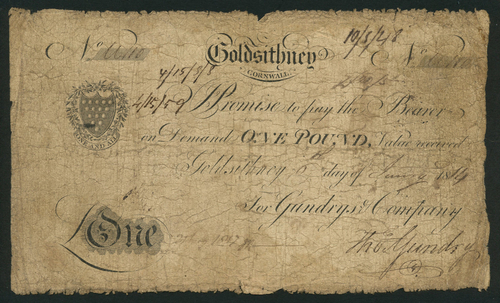 No No
Goldsithney
CORNWALL
10/5/2/8
4/15/9/8
4/15/59
ONE AND ALL
I Promise to pay the Bearer
on Demand ONE POUND, Value received
Goldsithney 6 day of 1814
For Gundrys & Company
£One
Thos Gundry